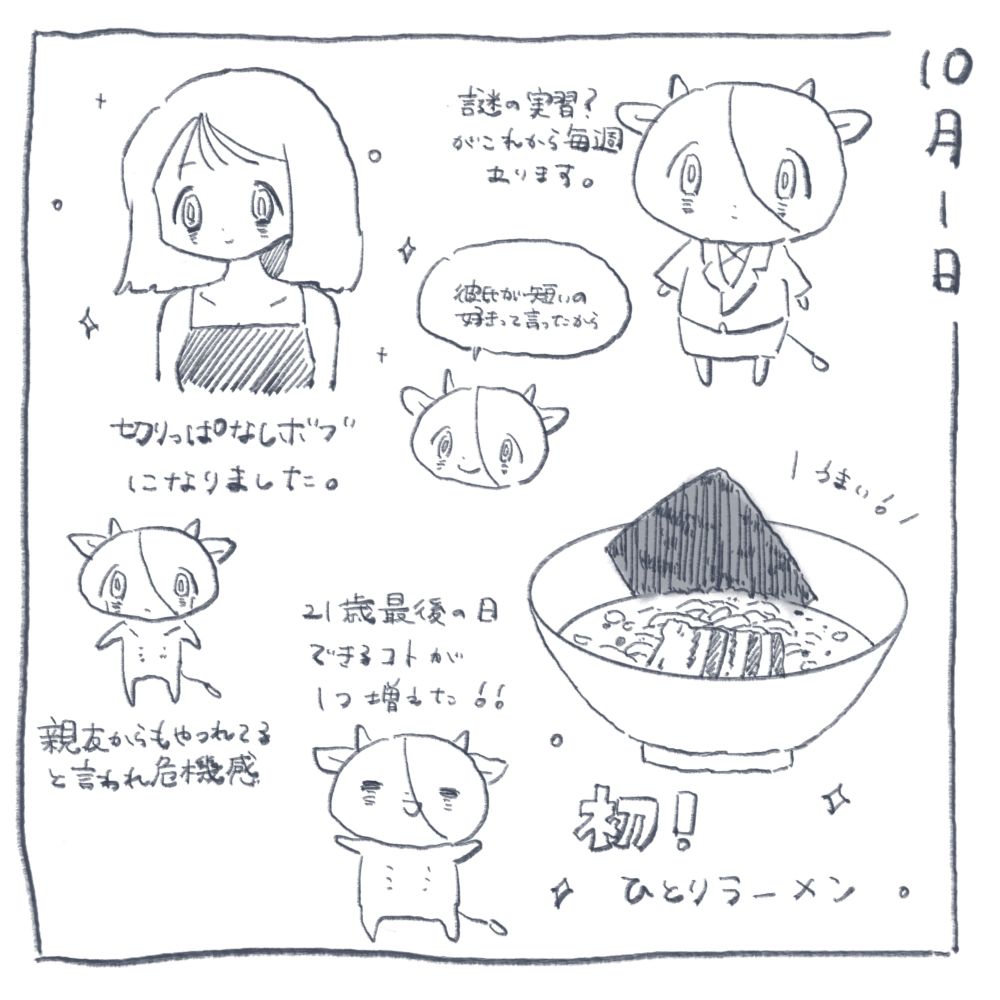 10月1日
謎の実習?
がこれから毎週
あります。
彼氏が短いの
好きって言ったから
切りっぱなしボブ
になりました。
うまい!
21歳最後の日
できるコトが
1つ増えた!!
親友からもやつれてる
と言われ危機感
初!
ひとりラーメン